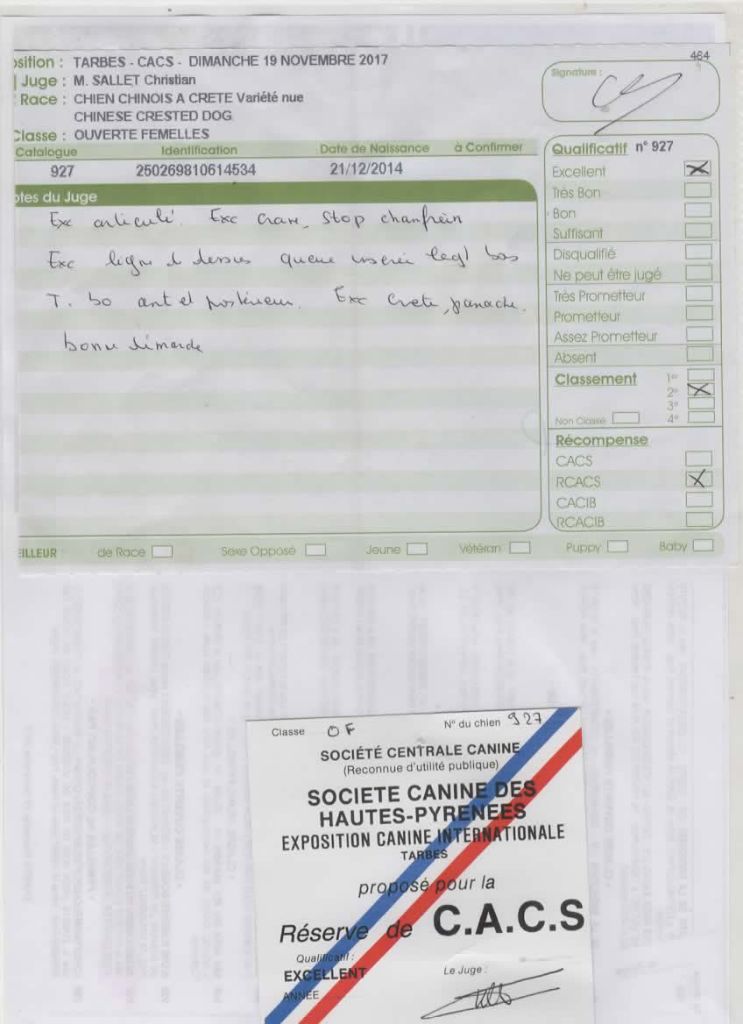 464
sition : TARBES - CACS - DIMANCHE 19 NOVEMBRE 2017
Juge : M. SALLET Christian
Signature :
Race : CHIEN CHINOIS A CRETE Variété nue
CHINESE CRESTED DOG
Classe : OUVERTE FEMELLES
Catalogue Identification Date de Naissance à Confirmer
927 250269810614534 21/12/2014
tes du Juge
Exc articulé. Exc crane, stop chanfrein
Exc ligne d dessus queue inserée leg! bas
T. bo ant et postérieur. Exc Crete, panache.
bonne démarche
Qualificatif n° 927
Excellent
Très Bon
Bon
Suffisant
Disqualifié
Ne peut être jugé
Très Prometteur
Prometteur
Assez Prometteur
Absent
Classement 1°
2°
3°
Non Classé 4°
Récompense
CACS
RCACS
CACIB
RCACIB
EILLEUR de Race Sexe Opposé Jeune Vétéran Puppy Baby
Classe OF N° du chien 927
SOCIÉTÉ CENTRALE CANINE
(Reconnue d'utilité publique)
SOCIETE CANINE DES
HAUTES-PYRENEES
EXPOSITION CANINE INTERNATIONALE
TARBES
proposé pour la
Réserve de C.A.C.S
Qualificatif :
EXCELLENT
Le Juge :
ANNÉE